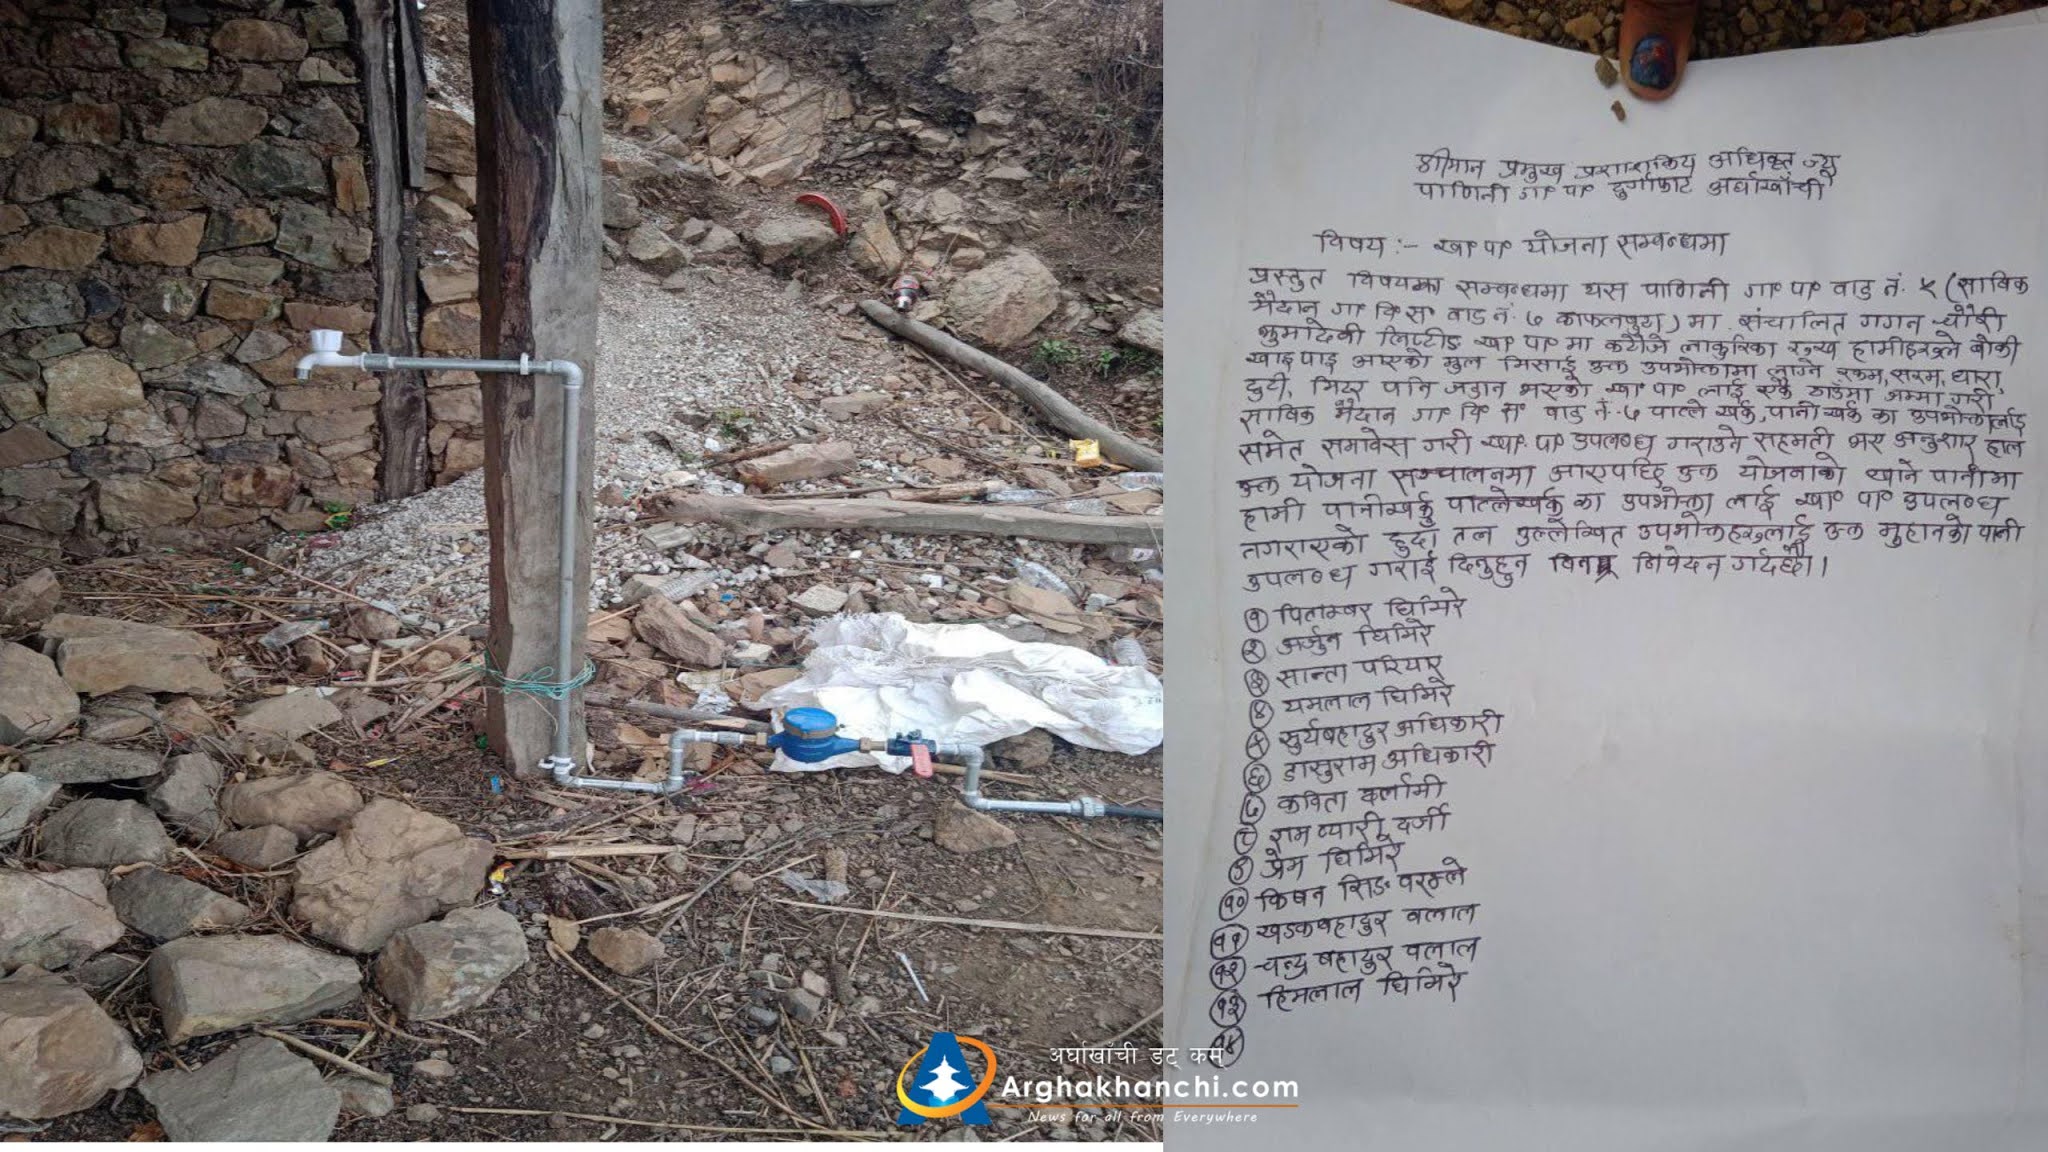 श्रीमान प्रमुख प्रशाशकिय अधिकृत ज्यू
पाणिनी गा॰ पा॰ दुर्गाफाट अर्घाखाँची
विषय :- खा॰ पा॰ योजना सम्बन्धमा
प्रस्तुत विषयका सम्बन्धमा यस पाणिनी गा॰ पा॰ वाड नं. ५ (साविक
मैदान गा॰ वि॰ स॰ वाड नं. ७ काफलपुरा) मा संचालित गगन चौरी
लिप्टीङ खा॰ पा॰ मा हामीहरुले
खाइ पाइ आएको मुल मिसाई उक्त उपभोक्तामा लाग्ने रकम, सरम, धारा,
टुटी, मिटर पनि जडान भएको खा॰ पा॰ लाई एकै ठाउँमा जम्मा गरी
साविक मैदान गा॰ वि॰ स॰ वाड नं. ७ पाल्ले खर्क, पानी खर्क का उपभोक्तालाई
समेत समावेस गरी खा॰ पा॰ उपलब्ध गराउने सहमती भए अनुशार हाल
उक्त योजना सञ्चालनमा आएपछि उक्त योजनाको खाने पानीमा
हामी पानीखर्क पाल्लेखर्क का उपभोक्ता लाई खा॰ पा॰ उपलब्ध
नगराएको हुदा तल उल्लेखित उपभोक्ताहरुलाई उक्त मुहानको पानी
उपलब्ध गराई दिनुहुन निवेदन गर्दछौं।
१ पिताम्बर घिमिरे
२ अर्जुन घिमिरे
३ सान्ता परियार
४ यमलाल घिमिरे
५ सुर्यबहादुर अधिकारी
६ डासुराम अधिकारी
७ कविता दर्लामी
८ राम प्यारी दर्जी
९ प्रेम घिमिरे
१० किषन सिङ
११ खडकबहादुर वलाल
१२ चन्द्र बहादुर वलाल
१३ हिमलाल घिमिरे
१४
अर्घाखाँची डट् कम
Arghakhanchi.com
News for all from Everywhere